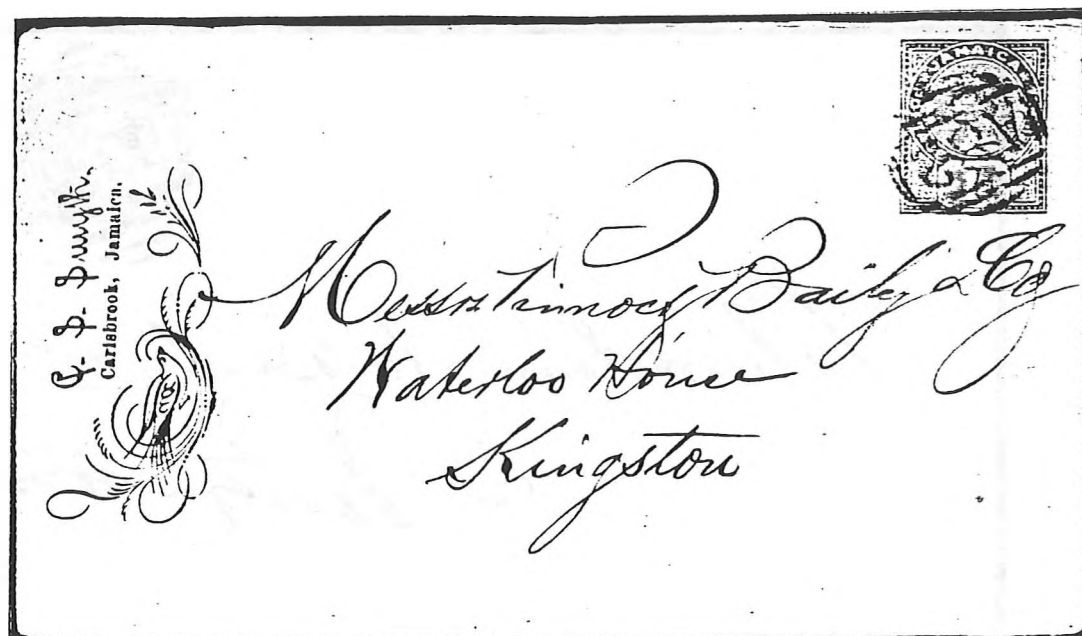 Smyth.
Carlsbrook, Jamaica.
JAMAICA
Messrs Pinnock Baily & Co
Waterloo House
Kingston